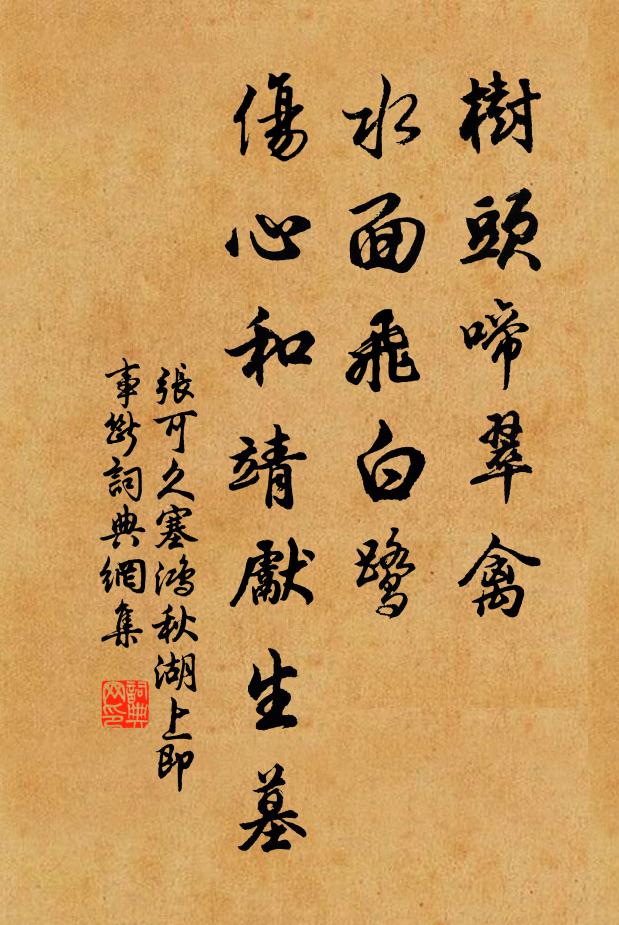 樹頭啼翠禽
水面飛白鹭
傷心和靖獻生墓
張可久塞鴻秋湖上即
事詞典網集
詞典
网印